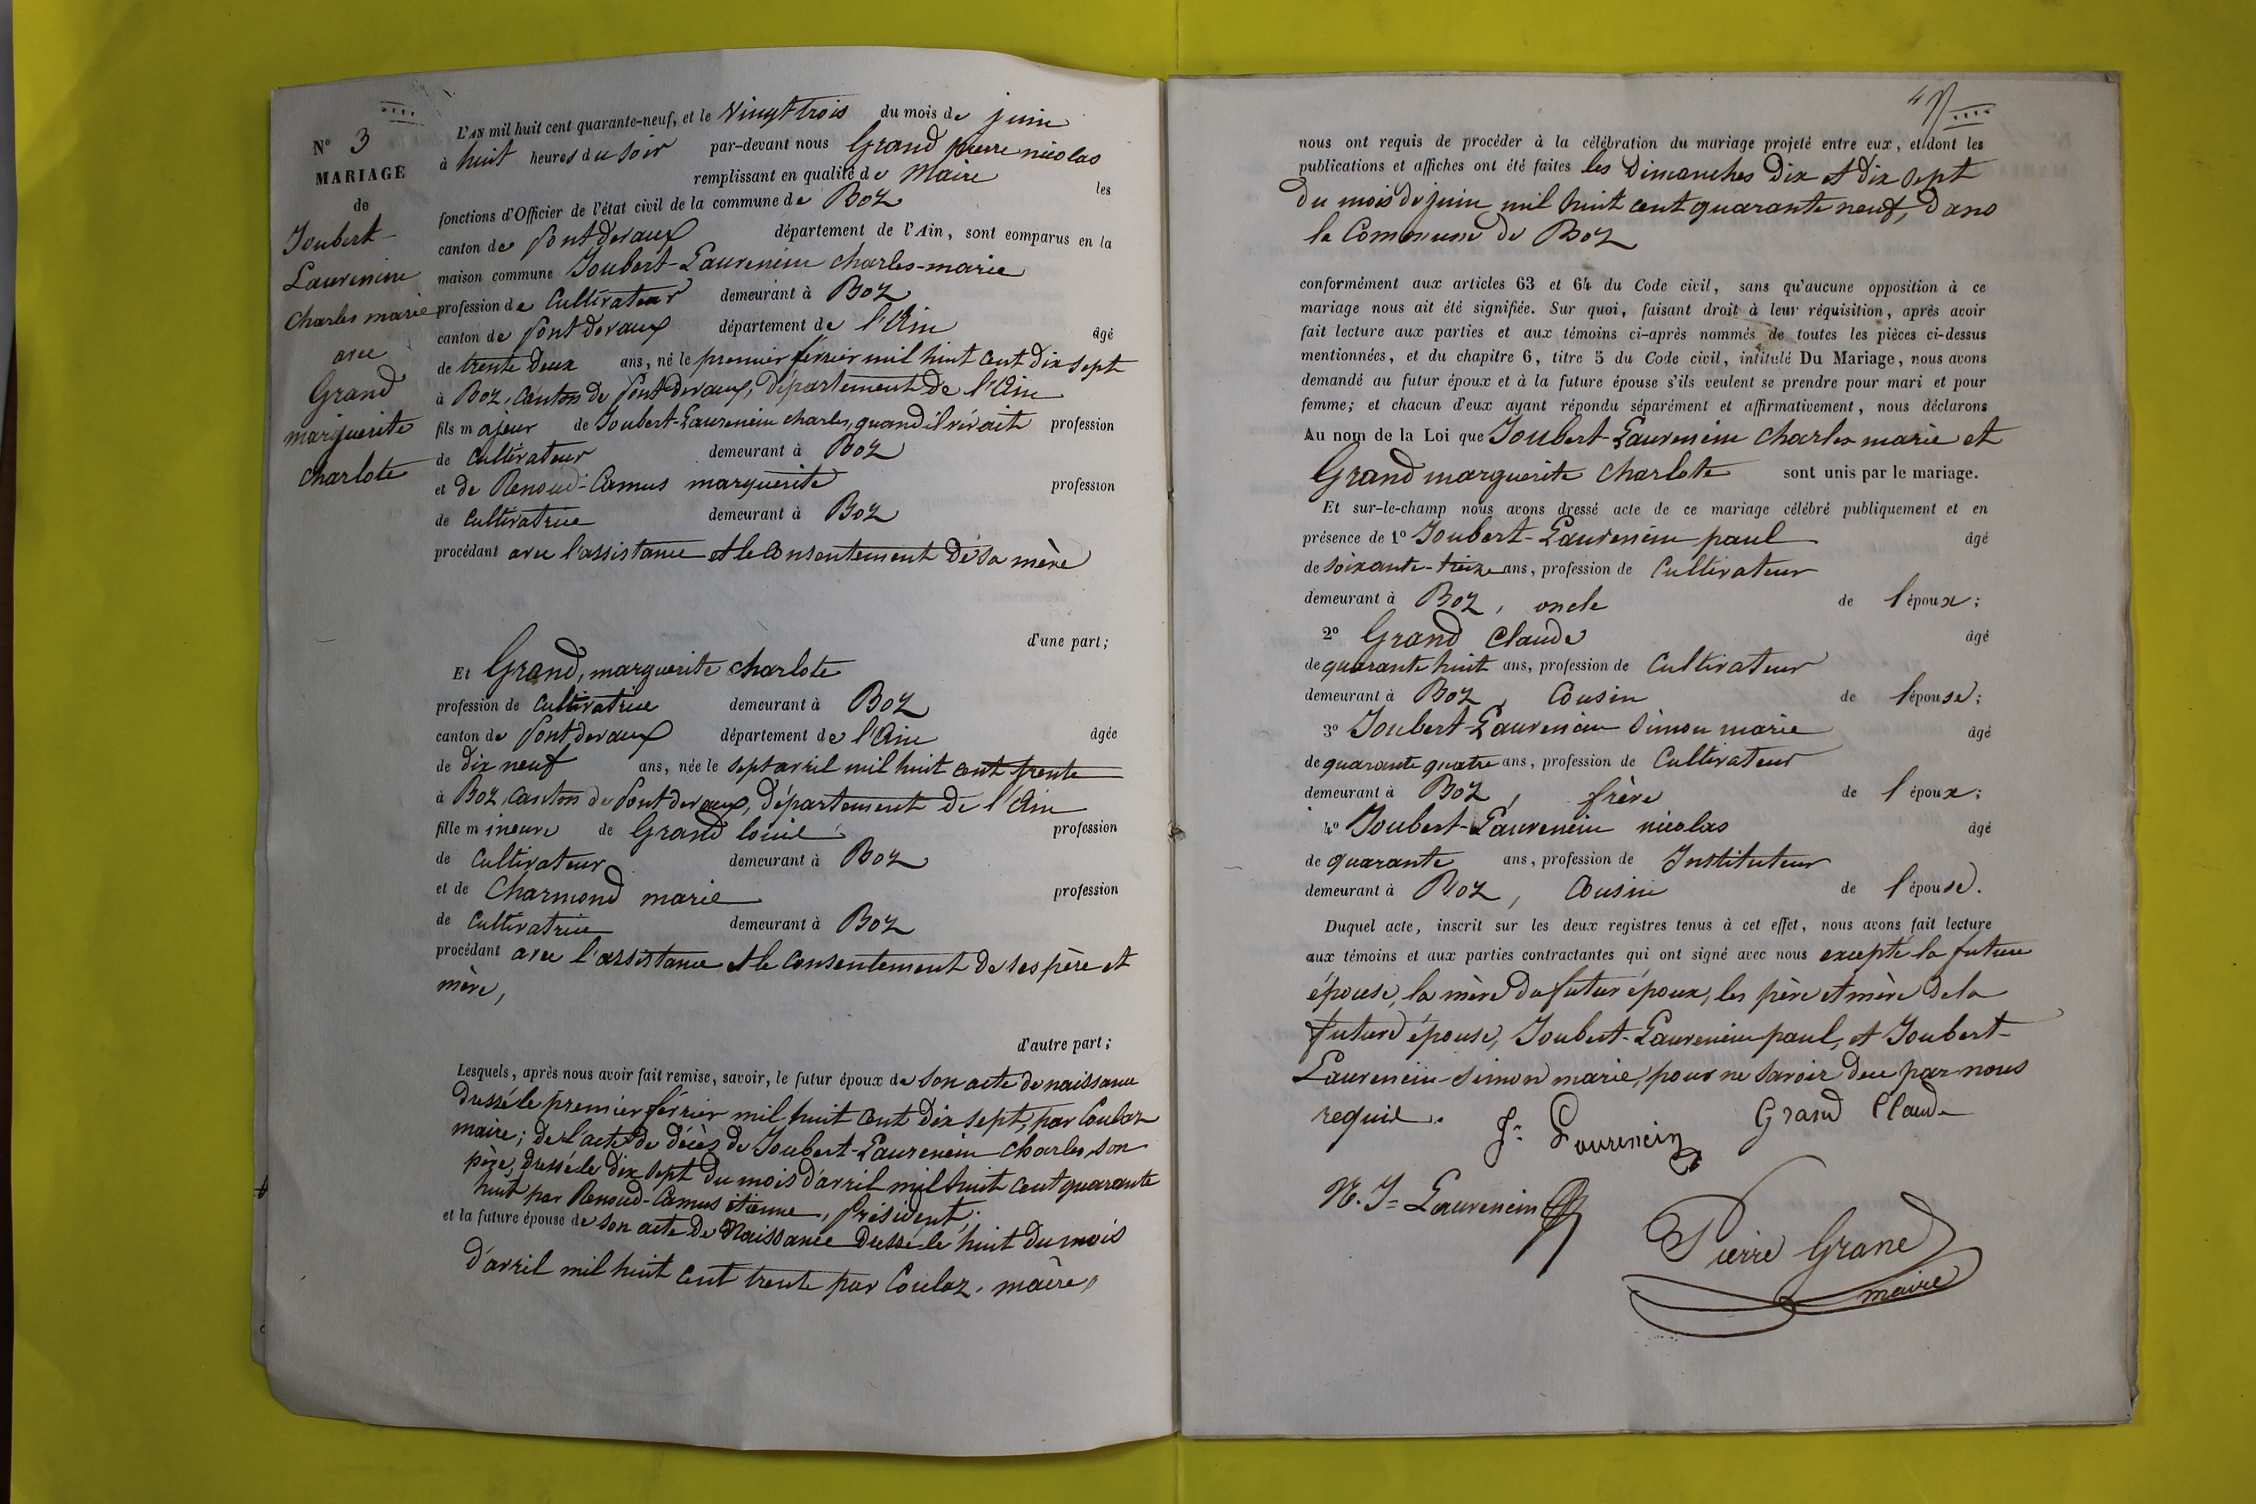 N° 3
MARIAGE
de
Joubert-
Laurencin
Charles marie
avec
Grand
marguerite
charlote
L'AN mil huit cent quarante-neuf, et le vingt trois du mois de juin
à huit heures du soir par-devant nous Grand pierre nicolas
remplissant en qualité de Maire les
fonctions d'Officier de l'état civil de la commune de Boz
canton de Pontdevaux département de l'Ain, sont comparus en la
maison commune Joubert-Laurencin charles-marie
profession de Cultivateur demeurant à Boz
canton de Pontdevaux département de l'Ain âgé
de trente deux ans, né le premier février mil huit cent dix sept
à Boz, canton de Pontdevaux, département de l'Ain
fils majeur de Joubert-Laurencin charles, quand il vivait profession
de Cultivateur demeurant à Boz
et de Renoud-Camus marguerite profession
de Cultivatrice demeurant à Boz
procédant avec l'assistance et le consentement de sa mère
d'une part;
Et Grand, marguerite charlote
profession de Cultivatrice demeurant à Boz
canton de Pontdevaux département de l'Ain âgée
de dix neuf ans, née le sept avril mil huit cent trente
à Boz, canton de Pontdevaux, département de l'Ain
fille mineure de Grand louis profession
de Cultivateur demeurant à Boz
et de Charmond marie profession
de Cultivatrice demeurant à Boz
procédant avec l'assistance et le consentement de ses père et
mère,
d'autre part;
Lesquels, après nous avoir fait remise, savoir, le futur époux de son acte de naissance
dressé le premier février mil huit cent dix sept, par Couloz
maire; de l'acte de décès de Joubert-Laurencin charles, son
père, dressé le dix sept du mois d'avril mil huit cent quarante
huit par Renoud-Camus étienne, Président.
et la future épouse de son acte de Naissance dressé le huit du mois
d'avril mil huit cent trente par Couloz, maire,
nous ont requis de procéder à la célébration du mariage projeté entre eux, et dont les
publications et affiches ont été faites les Dimanches dix et dix sept
du mois de juin mil huit cent quarante neuf, dans
la Commune de Boz
conformément aux articles 63 et 64 du Code civil, sans qu'aucune opposition à ce
mariage nous ait été signifiée. Sur quoi, faisant droit à leur réquisition, après avoir
fait lecture aux parties et aux témoins ci-après nommés de toutes les pièces ci-dessus
mentionnées, et du chapitre 6, titre 5 du Code civil, intitulé Du Mariage, nous avons
demandé au futur époux et à la future épouse s'ils veulent se prendre pour mari et pour
femme; et chacun d'eux ayant répondu séparément et affirmativement, nous déclarons
Au nom de la Loi que Joubert-Laurencin charles marie et
Grand marguerite charlote sont unis par le mariage.
Et sur-le-champ nous avons dressé acte de ce mariage célébré publiquement et en
présence de 1° Joubert-Laurencin paul âgé
de soixante-treize ans, profession de Cultivateur
demeurant à Boz, oncle de l'époux;
2° Grand Claude âgé
de quarante huit ans, profession de Cultivateur
demeurant à Boz, Cousin de l'épouse;
3° Joubert-Laurencin Simon marie âgé
de quarante quatre ans, profession de Cultivateur
demeurant à Boz, frère de l'époux;
4° Joubert-Laurencin nicolas âgé
de quarante ans, profession de Instituteur
demeurant à Boz, Cousin de l'épouse.
Duquel acte, inscrit sur les deux registres tenus à cet effet, nous avons fait lecture
aux témoins et aux parties contractantes qui ont signé avec nous excepté la future
épouse, la mère du futur époux, les père et mère de la
future épouse, Joubert-Laurencin paul, et Joubert-
Laurencin Simon marie, pour ne savoir de ce par nous
requis.
J= Lourencin Grand Claude
N. J= Laurencin
Pierre Grand
maire